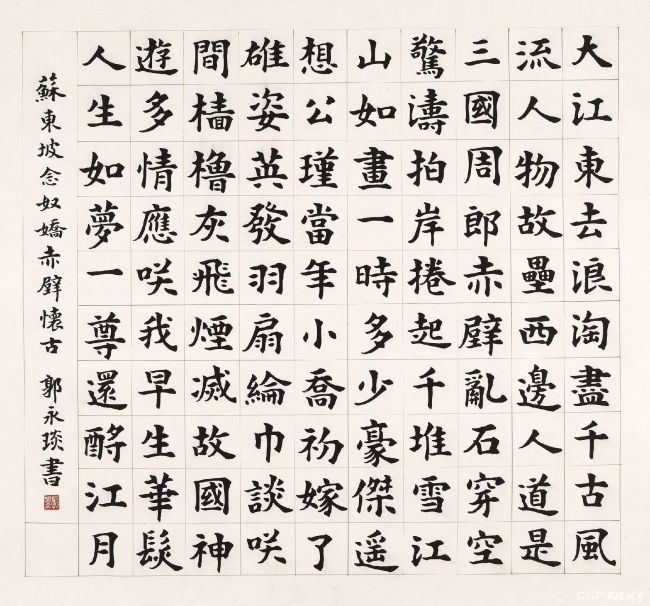 大江東去浪淘盡千古風
流人物故壘西邊人道是
三國周郎赤壁亂石穿空
驚濤拍岸捲起千堆雪江
山如畫一時多少豪傑遥
想公瑾當年小喬初嫁了
雄姿英發羽扇綸巾談咲
間樯櫓灰飛煙滅故國神
遊多情應咲我早生華髮
人生如夢一尊還酹江月
蘇東坡念奴嬌赤壁懷古 郭永琰書